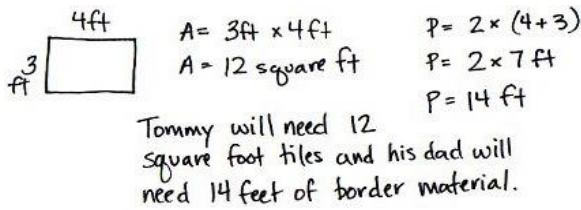 4ft
3
ft
A= 3ft x 4ft
A = 12 square ft
P= 2 x (4+3)
P= 2 x 7 ft
P= 14 ft
Tommy will need 12
square foot tiles and his dad will
need 14 feet of border material.